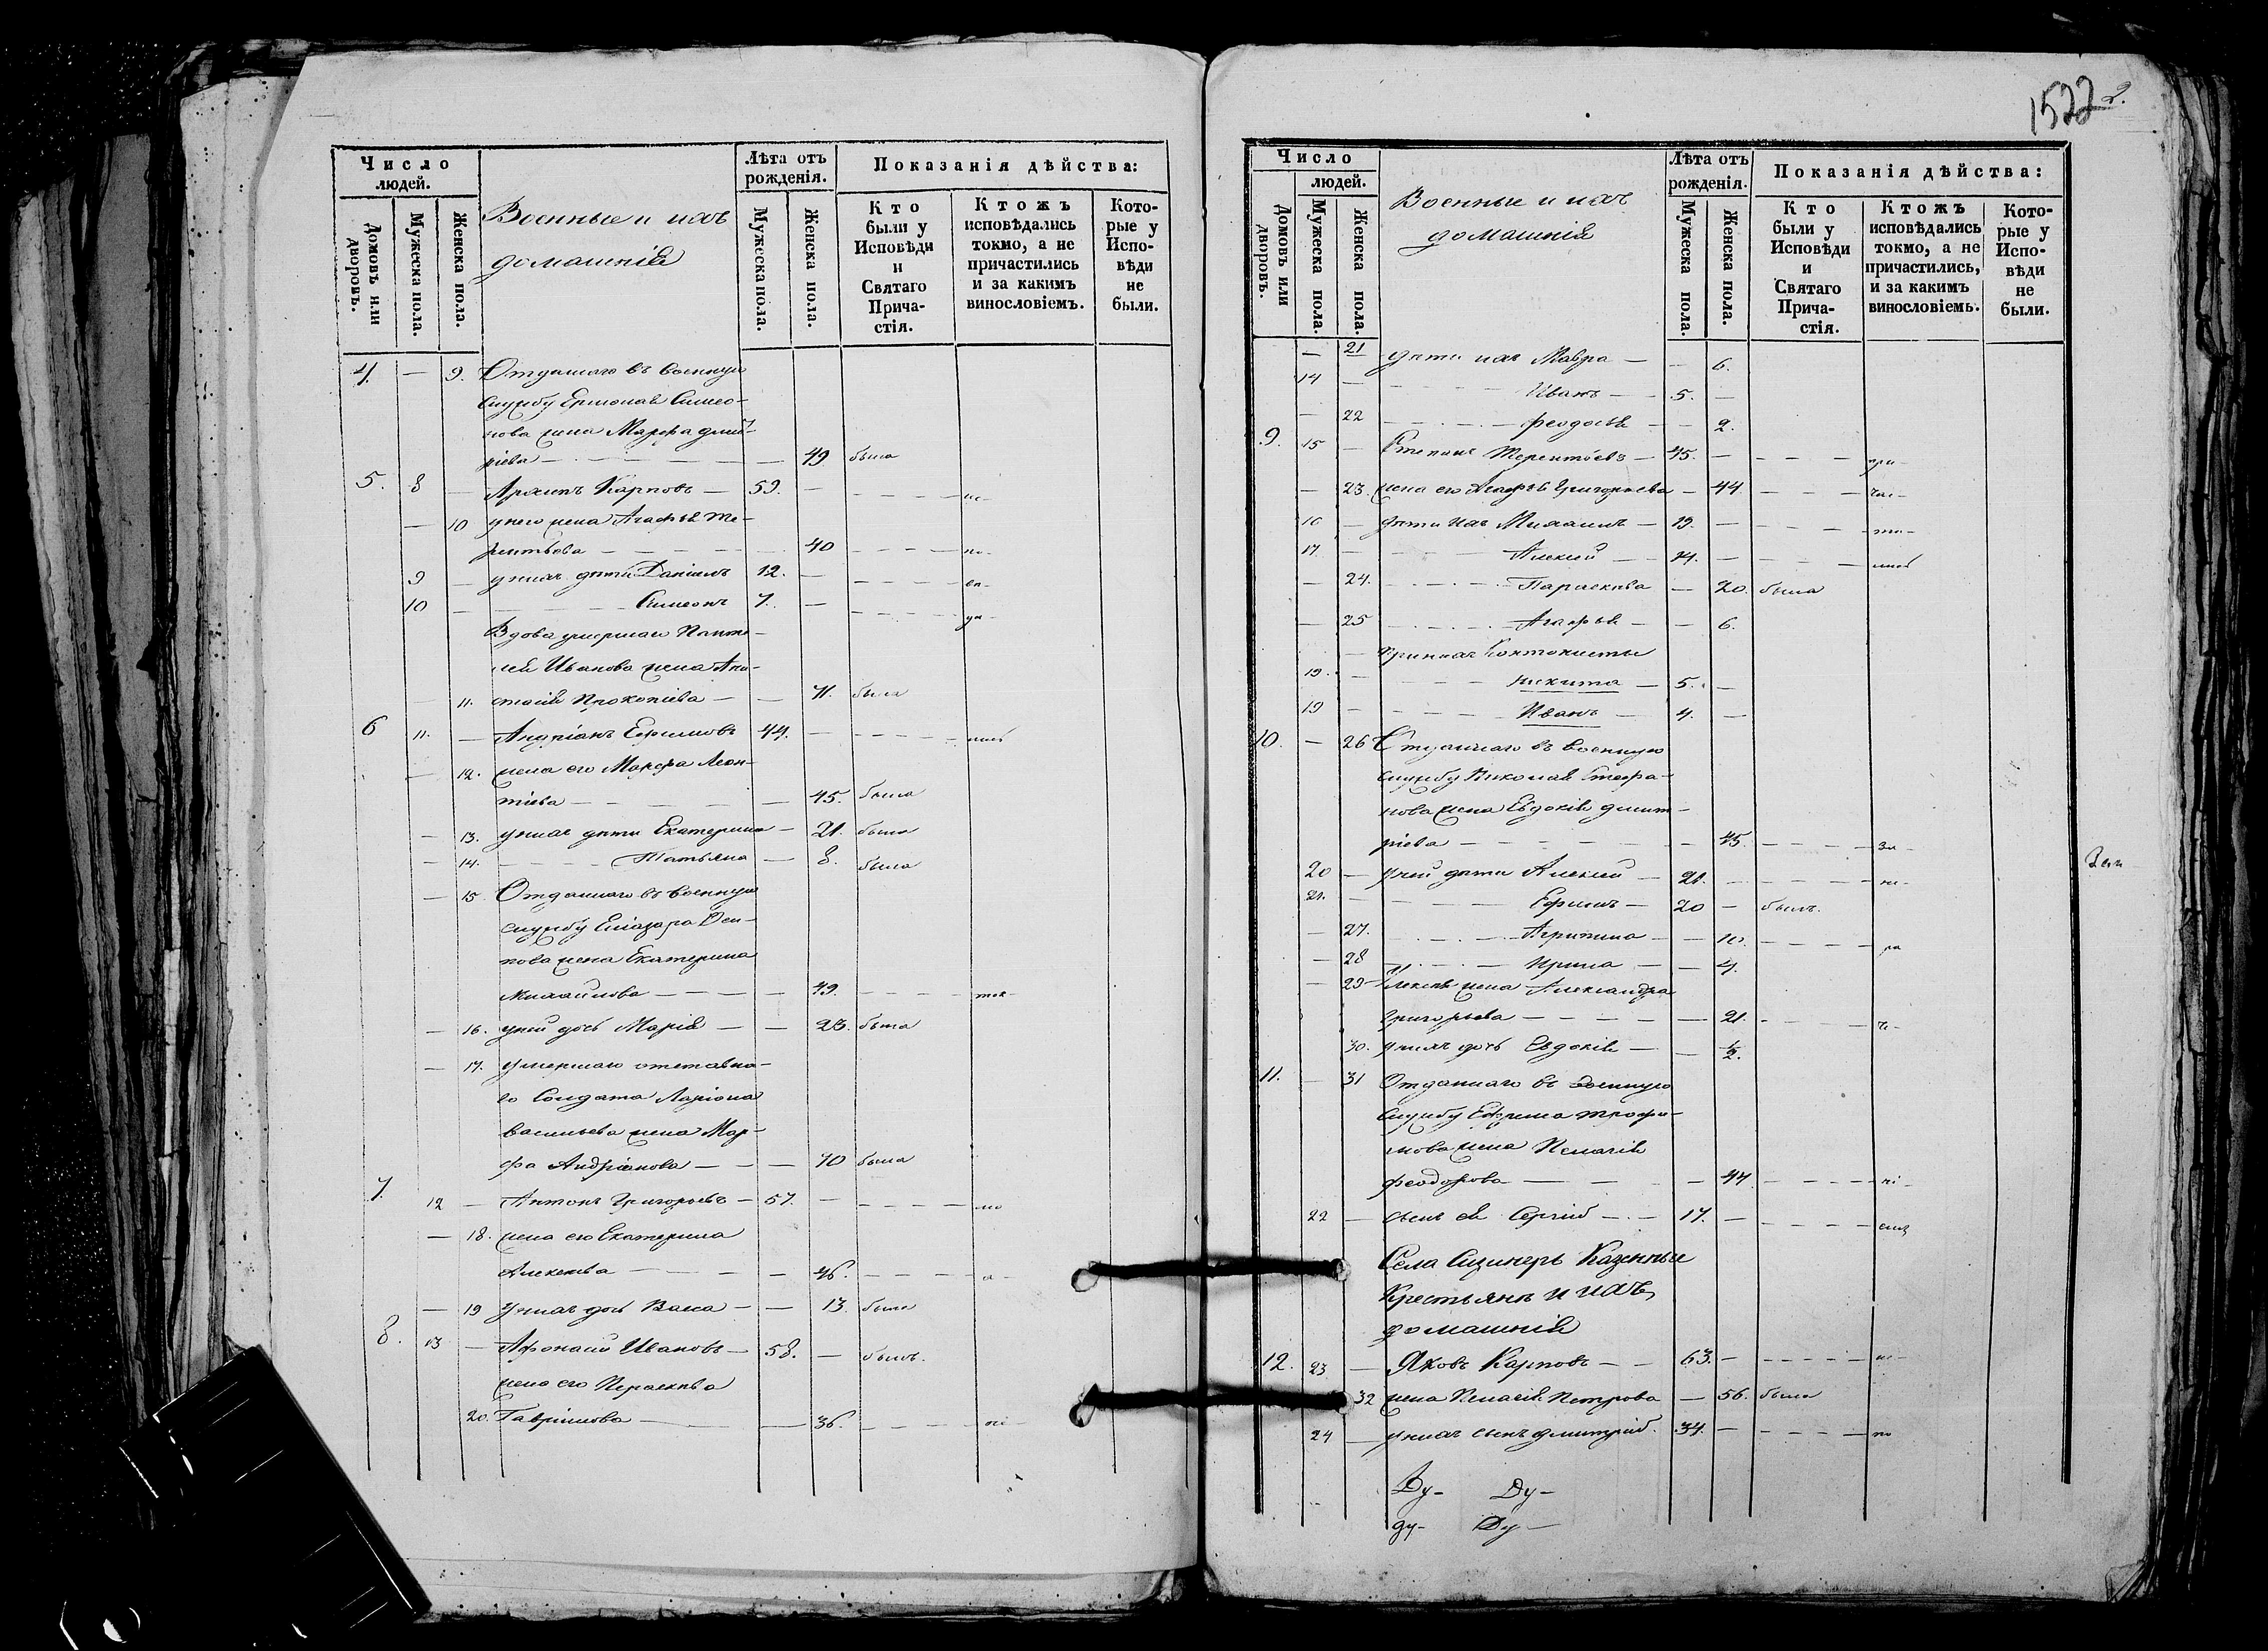 Число людей.
Домовъ или дворовъ.
Мужеска пола.
Женска пола.
Военные и ихъ
домашнія
Лѣта отъ рожденія.
Мужеска пола.
Женска пола.
Показанія дѣйства:
Кто были у Исповѣди и Святаго Прича-стія.
Ктожъ исповѣдались токмо, а не причастились и за какимъ винословіемъ.
Кото-рые у Испо-вѣди не были.
4. — 9. Отданнаго въ военную
службу Ермолая Симео-
нова жена Марфа Дмит-
ріева — — 49 была
5. 8 — Архипъ Карповъ — 59. — — — — ис-
— 10 у него жена Агафья Те-
рентьева — — — 40 — — — по-
9 — у нихъ дѣти Даніилъ 12. — — — — вѣ-
10 — — — — Симеонъ 7. — — — — да-
Вдова умершаго Панте-
лея Иванова жена Ана-
11. стасія Прокопіева — — 71. была
6 11. — Андріанъ Ефимовъ 44. — — — —
— 12. жена его Марфа Леон-
тіева — — — — 45. была
— 13. у нихъ дѣти Екатерина — 21. была
— 14. — — — Татьяна — 8. была
— 15 Отданнаго въ военную
службу Еліазара Оси-
пова жена Екатерина
Михайлова — — — — 49. — — — ток-
— 16. у ней дочь Марія — — 23. была
— 17. умершаго отставна-
го Солдата Ларіона
Васильева жена Мар-
фа Андріанова — — — 70 была
7. 12 — Антонъ Григорьевъ — 57. — — — — мо
— 18. жена его Екатерина
Алексѣева — — — — 46. — — — а-
— 19 у нихъ дочь Васса — — 13. была
8. 13 — Афонасій Ивановъ — 58. — былъ.
жена его Параскѣва
20. Гавріилова — — 36. — — — не-
1522 2.
Число людей.
Домовъ или дворовъ.
Мужеска пола.
Женска пола.
Военные и ихъ
домашнія
Лѣта отъ рожденія.
Мужеска пола.
Женска пола.
Показанія дѣйства:
Кто были у Исповѣди и Святаго Прича-стія.
Ктожъ исповѣдались токмо, а не причастились, и за какимъ винословіемъ.
Кото-рые у Испо-вѣди не были.
— 21 дѣти ихъ Мавра — — 6.
14 — — — — Иванъ — 5. —
— 22 — — — Феодосія — — 2.
9. 15 — Степанъ Терентьевъ — 45. — — — — при-
— 23. жена его Агафья Григорьева — 44. — — — час-
16 — дѣти ихъ Михаилъ — 19. — — — — ти-
17. — — — — Алексій — 14. — — — —
— 24. — — — Параскѣва — 20. была
— 25 — — — Агафья — — 6.
при нихъ Кантонисты
19. — — — — Никита — 5. —
19 — — — — Иванъ — 4. —
10. — 26 Отданнаго въ военную
службу Николая Стефа-
нова жена Евдокія Дмит-
ріева — — — — — 45. — — — за-
20 — у ней дѣти Алексій — 21. — — — —
21. — — — — Ефимъ — 20 — былъ.
— 27. — — — Агрипина — — 10. — — —
— 28 — — — Ирина — — 4.
— 29 — Алексѣя жена Александра
Григорьева — — — — — 21. — — —
30. у нихъ дочь Евдокія — — 1/2.
11. — 31 Отданнаго въ военную
службу Ефрема Трофи-
мова жена Пелагія
Феодорова — — — — 44 — — — ні-
22 — сынъ ея Сергій — — 17. — — — —
Села Сизинеръ Казенные
Крестьяне и ихъ
домашнія
12. 23 — Яковъ Карповъ — — 63. — — — — ис-
32 жена Пелагія Петрова — 56. была
24 — у нихъ сынъ Дмитрій. 34. — — — — по
Ду- Ду-
ду- Ду-